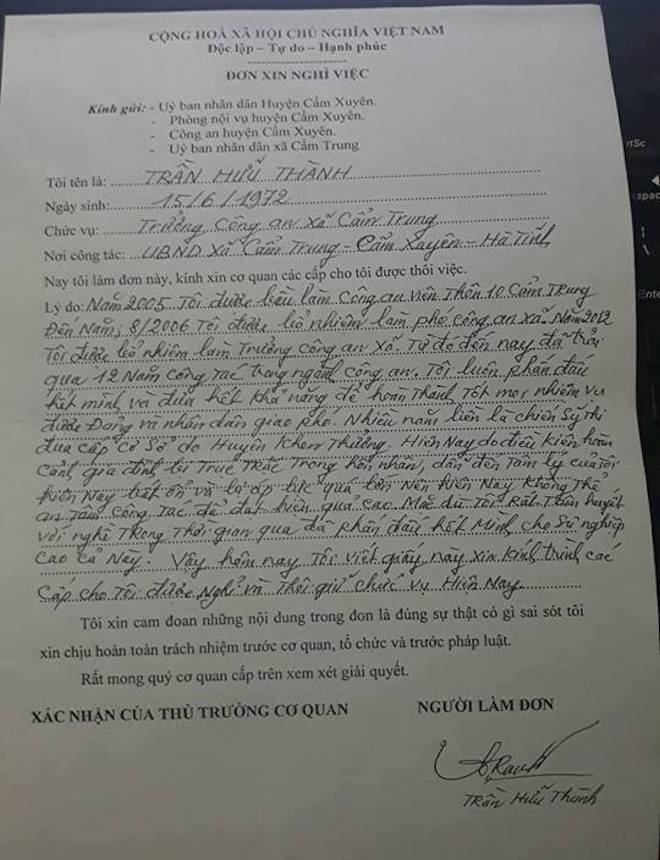 CỘNG HOÀ XÃ HỘI CHỦ NGHĨA VIỆT NAM
Độc lập – Tự do – Hạnh phúc
ĐƠN XIN NGHỈ VIỆC
Kính gửi: - Uỷ ban nhân dân Huyện Cẩm Xuyên.
- Phòng nội vụ huyện Cẩm Xuyên.
- Công an huyện Cẩm Xuyên.
- Uỷ ban nhân dân xã Cẩm Trung
Tôi tên là: TRẦN HỮU THÀNH
Ngày sinh: 15/6/1972
Chức vụ: Trưởng Công an xã Cẩm Trung
Nơi công tác: UBND xã Cẩm Trung - Cẩm Xuyên - Hà Tĩnh
Nay tôi làm đơn này, kính xin cơ quan các cấp cho tôi được thôi việc.
Lý do: Năm 2005 Tôi được bầu làm Công an viên Thôn 10 Cẩm Trung
Đến Năm, 8/2006 Tôi được bổ nhiệm làm phó công an xã. Năm 2012
Tôi được bổ nhiệm làm Trưởng công an xã. Từ đó đến nay đã trải
qua 12 Năm công tác trong ngành công an. Tôi luôn phấn đấu
hết mình và đưa hết khả năng để hoàn Thành Tốt mọi nhiệm vụ
được Đảng và nhân dân giao phó. Nhiều năm liền là chiến Sỹ thi
đua cấp cơ Sở do Huyện khen Thưởng. Hiện Nay do điều kiện hoàn
cảnh gia đình bị Trục Trặc Trong hôn nhân, dẫn đến Tâm lý của Tôi
hiện Nay bất ổn và bị áp lực quá lớn Nên hiện Nay không Thể
an Tâm công Tác để đạt hiệu quả cao Mặc dù Tôi Rất Tâm huyết
với nghề Trong Thời gian qua đã phấn đấu hết Mình cho Sự nghiệp
cao cả Này. Vậy hôm nay Tôi viết giấy này xin kính trình các
Cấp cho Tôi được Nghỉ và Thôi giữ chức vụ Hiện Nay
Tôi xin cam đoan những nội dung trong đơn là đúng sự thật có gì sai sót tôi
xin chịu hoàn toàn trách nhiệm trước cơ quan, tổ chức và trước pháp luật.
Rất mong quý cơ quan cấp trên xem xét giải quyết.
XÁC NHẬN CỦA THỦ TRƯỞNG CƠ QUAN NGƯỜI LÀM ĐƠN
Trần Hữu Thành